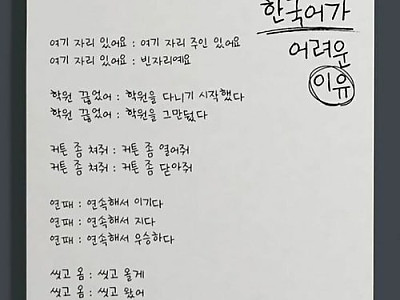 한국어가
어려운
이유
여기 자리 있어요 : 여기 자리 주인 있어요
여기 자리 있어요 : 빈자리예요
학원 끊었어 : 학원을 다니기 시작했다
학원 끊었어 : 학원을 그만뒀다
커튼 좀 쳐줘 : 커튼 좀 열어줘
커튼 좀 쳐줘 : 커튼 좀 닫아줘
연패 : 연속해서 이기다
연패 : 연속해서 지다
연패 : 연속해서 우승하다
씻고 옴 : 씻고 올게
씻고 옴 : 씻고 왔어